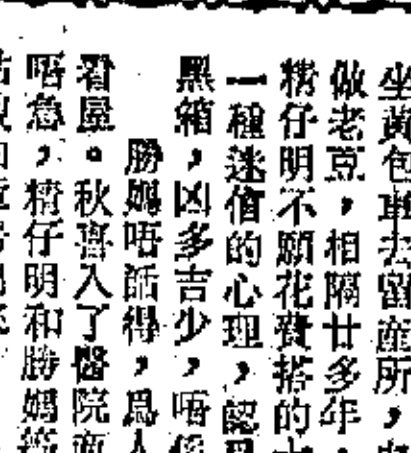 坐黃包車去留產所，
做老荳，相隔廿多年，
精仔明不願花費搭的
一種迷信的心理，認爲
黑箱，凶多吉少，唔係
勝媽唔話得，爲人
看屋。秋喜入了醫院
唔急，精仔明和勝媽